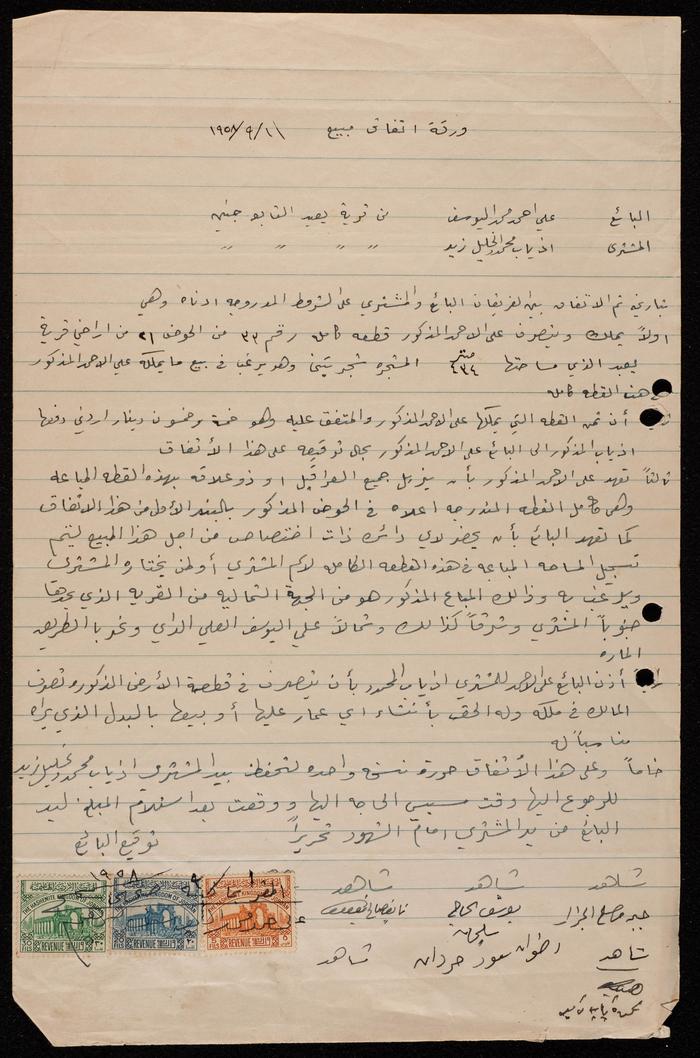 ورقة اتفاق مبيع ١٩٥٨/٩/١١
البائع علي احمد محمد اليوسف من قرية يعبد التابع جنين
المشتري اذياب محمود الخليل زيد " " " "
بتاريخه تم الاتفاق بين الفريقان البائع والمشتري على الشروط المدروجه ادناه وهي
اولاً يملك ويتصرف علي الاحمد المذكور قطعه كامله رقم ٣٣ من الحوض ٢١ من اراضي قرية
يعبد الذي مساحتها ٤٣٤ متر المشجره شجر تيني وهو يرغب في بيع ما يملكه علي الاحمد المذكور
هذه القطعه كامله
أن ثمن القطعه التي يملكها علي الاحمد المذكور والمتفق عليه وهو خمسة وخمسون دينار اردني دفعها
اذياب المذكور الى البائع علي الاحمد المذكور بحال توقيعه على هذا الأتفاق
ثالثاً تعهد علي الاحمد المذكور بأن يزيل جميع العراقيل او ذو علاقه بهذه القطعه المباعه
وهي كامل القطعه المندرجه اعلاه في الحوض المذكور بالبند الأول من هذا الاتفاق
كما تعهد البائع بأن يحضر لدي دائره ذات اختصاص من اجل هذا المبيع ليتم
تسجيل المساحه المباعه في هذه القطعه الكامله لاسم المشتري أو لمن يختاره المشتري
ويرغب به وذالك المباع المذكور هو من الجهة الشماليه من القريه الذي يحدها
جنوباً المشتري وشرقاً كذالك وشمالاً علي اليوسف العلي الداي وغربا الطريق
الماره
أذن البائع علي الاحمد للمشتري اذياب المحمود بأن يتصرف في قطعة الأرض المذكوره تصرف
المالك في ملكه وله الحق بأنشاء اي عمار عليها أو بيعها بالبدل الذي يراه
مناسباً له
خامساً وعلى هذا الأتفاق حررة نسخه واحده لتحفظ بيد المشتري اذياب محمود خليل زيد
للرجوع اليها وقت مسيس الحاجه اليها ووقعت بعد استلام المبلغ ليد
البائع من يد المشتري امام الشهود تحريراً توقيع البائع
شاهد شاهد شاهد
يوسف الحاج
شاهد انطوان سعود حردان شاهد
١٩٥٨
THE HASHEMITE KINGDOM OF JORDAN
REVENUE
FILS